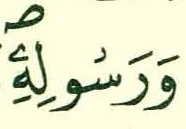 وَرَسُولِهِۦۖ